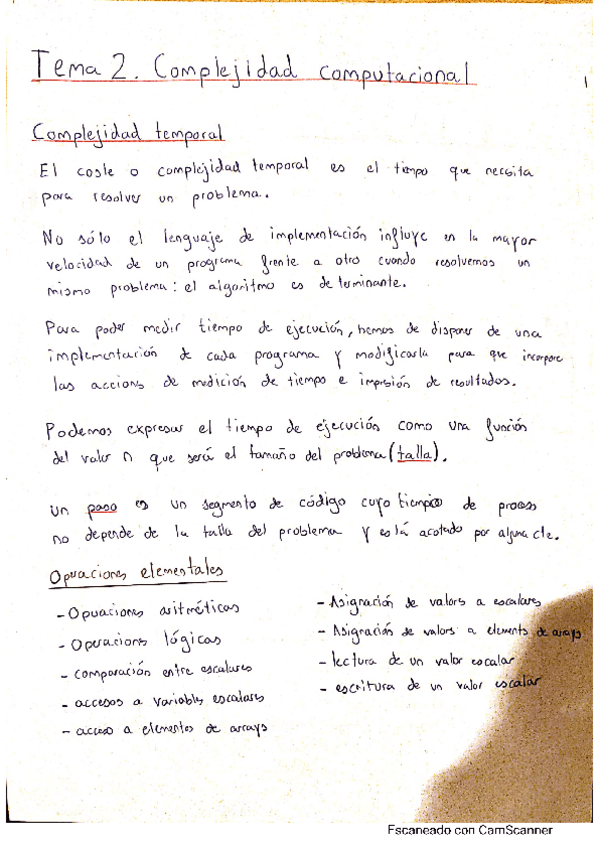 Tema 2. Complejidad computacional
1
Complejidad temporal
El coste o complejidad temporal es el tiempo que necesita
para resolver un problema.
No sólo el lenguaje de implementación influye en la mayor
velocidad de un programa frente a otro cuando resolvemos un
mismo problema: el algoritmo es determinante.
Para poder medir tiempo de ejecución, hemos de disponer de una
implementación de cada programa y modificarla para que incorpore
las accions de medición de tiempo e impresión de resultados.
Podemos expresar el tiempo de ejecución como una función
del valor n que será el tamaño del problema (talla).
Un paso es un segmento de código cuyo tiempo de proceso
no depende de la talla del problema y está acotado por alguna cte.
Operaciones elementales
- Operaciones aritméticas
- Operacions lógicas
- comparación entre escalares
- accesos a variables escalares
- acceso a elementos de arrays
- Asignación de valors a escalares
- Asignación de valors a elements de arrays
- lectura de un valor escalar
- escritura de un valor escalar
Escaneado con CamScanner